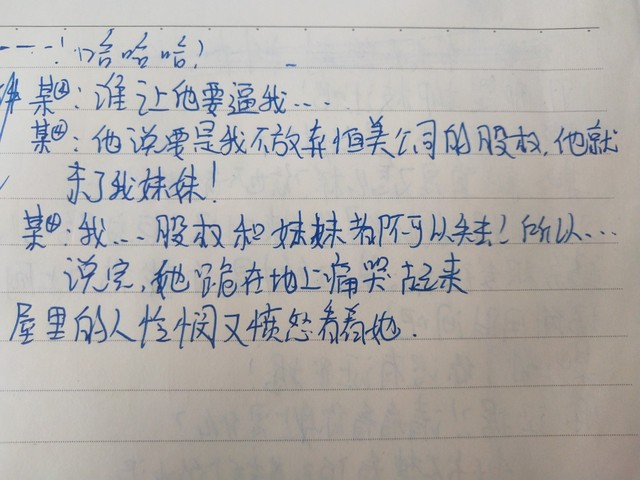 ……!哈哈哈!
某④:谁让他要逼我….
某④:他说要是我不放弃恒美公司的股权,他就
杀了我妹妹!
某④:我….股权和妹妹都不可以失去!所以….
说完,她跪在地上痛哭起来
屋里的人怜悯又愤怒看着她.